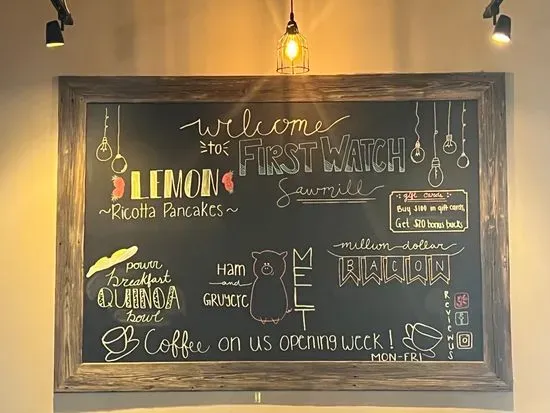 welcome
to FIRST WATCH
Sawmill
LEMON
~Ricotta Pancakes~
gift cards
Buy $100 in gift cards
Get $20 bonus bucks
million-dollar
BACON
power
breakfast
QUINOA
bowl
Ham
and
GRUYERE
MELT
Review us
Coffee on us opening week!
MON-FRI